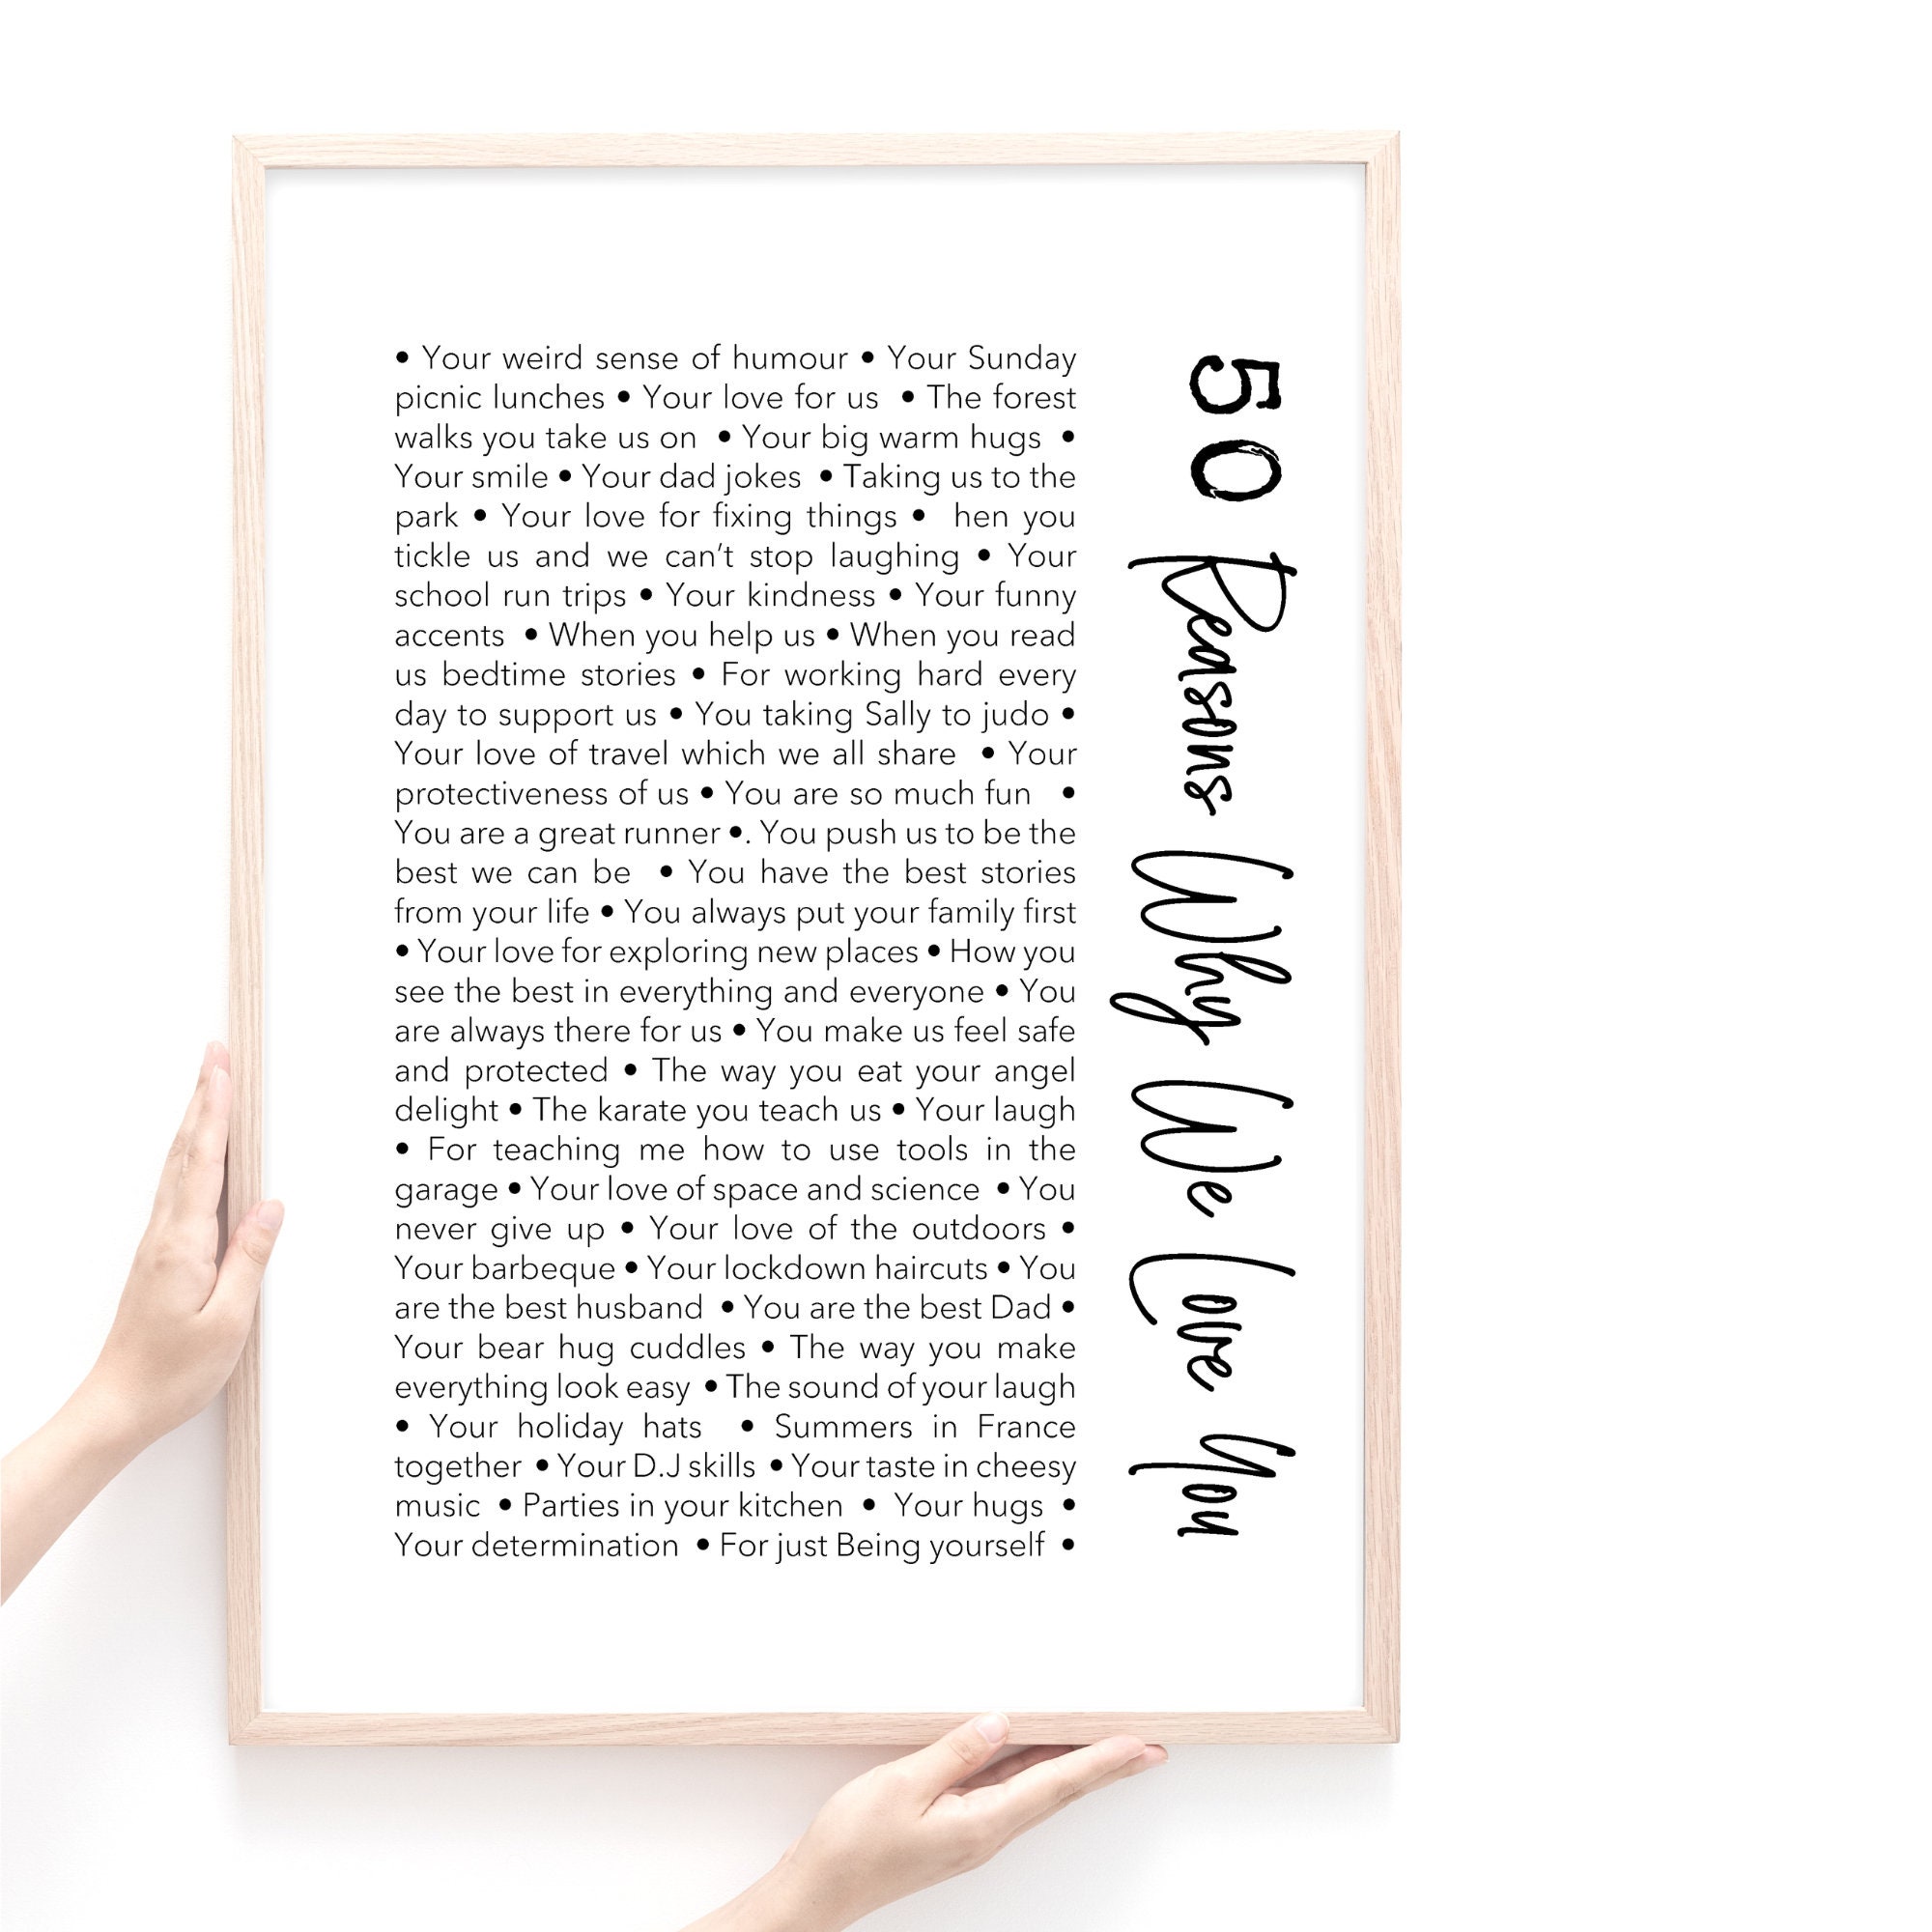 • Your weird sense of humour • Your Sunday
picnic lunches • Your love for us • The forest
walks you take us on • Your big warm hugs •
Your smile • Your dad jokes • Taking us to the
park • Your love for fixing things • hen you
tickle us and we can't stop laughing • Your
school run trips • Your kindness • Your funny
accents • When you help us • When you read
us bedtime stories • For working hard every
day to support us • You taking Sally to judo •
Your love of travel which we all share • Your
protectiveness of us • You are so much fun •
You are a great runner •. You push us to be the
best we can be • You have the best stories
from your life • You always put your family first
• Your love for exploring new places • How you
see the best in everything and everyone • You
are always there for us • You make us feel safe
and protected • The way you eat your angel
delight • The karate you teach us • Your laugh
• For teaching me how to use tools in the
garage • Your love of space and science • You
never give up • Your love of the outdoors •
Your barbeque • Your lockdown haircuts • You
are the best husband • You are the best Dad •
Your bear hug cuddles • The way you make
everything look easy • The sound of your laugh
• Your holiday hats • Summers in France
together • Your D.J skills • Your taste in cheesy
music • Parties in your kitchen • Your hugs •
Your determination • For just Being yourself •
50 Reasons Why We Love You